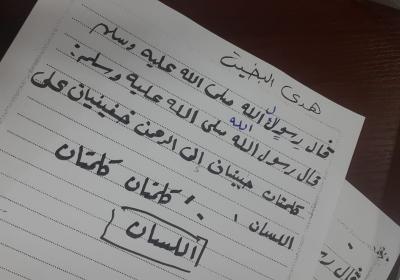 هدى البخيت
قال رسول الله صلى الله عليه وسلم
الله
قال رسول الله صلى الله عليه وسلم:
كلمتان حبيبتان إلى الرحمن خفيفتان على
اللسان، كلمتان كلمتان
اللسان
قال